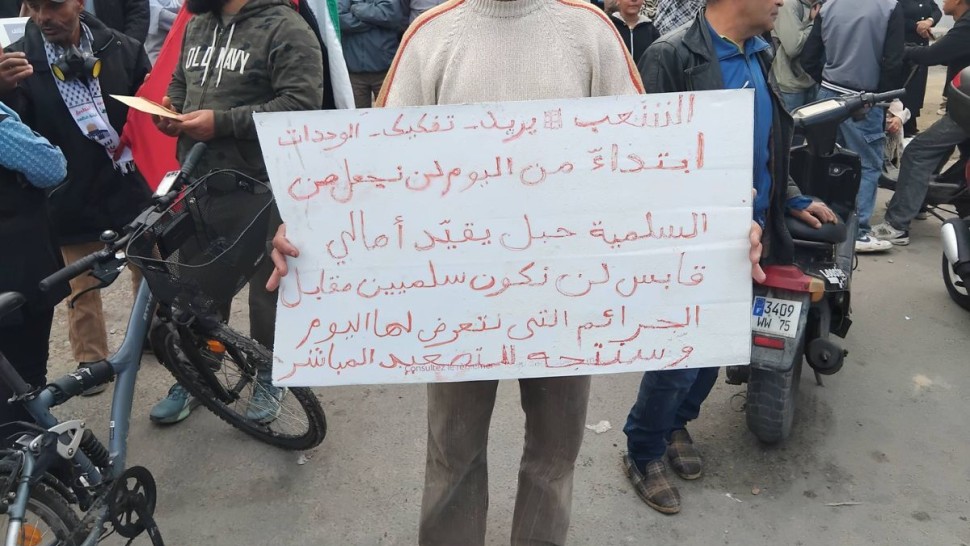 OLD NAVY
الشعب يريد - تفكيك - الوحدات
ابتداءً من اليوم لن نجعل من
السلمية حبل يقيّد أهالي
قابس لن نكون سلميين مقابل
الجرائم التي نتعرض لها اليوم
وسنتجه للتصعيد المباشر
3409
WW 75